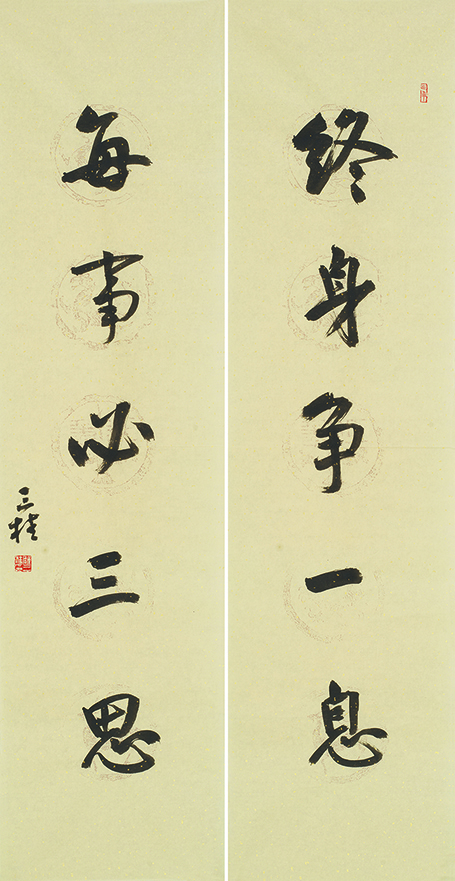 终身争一息
每事必三思
三桂